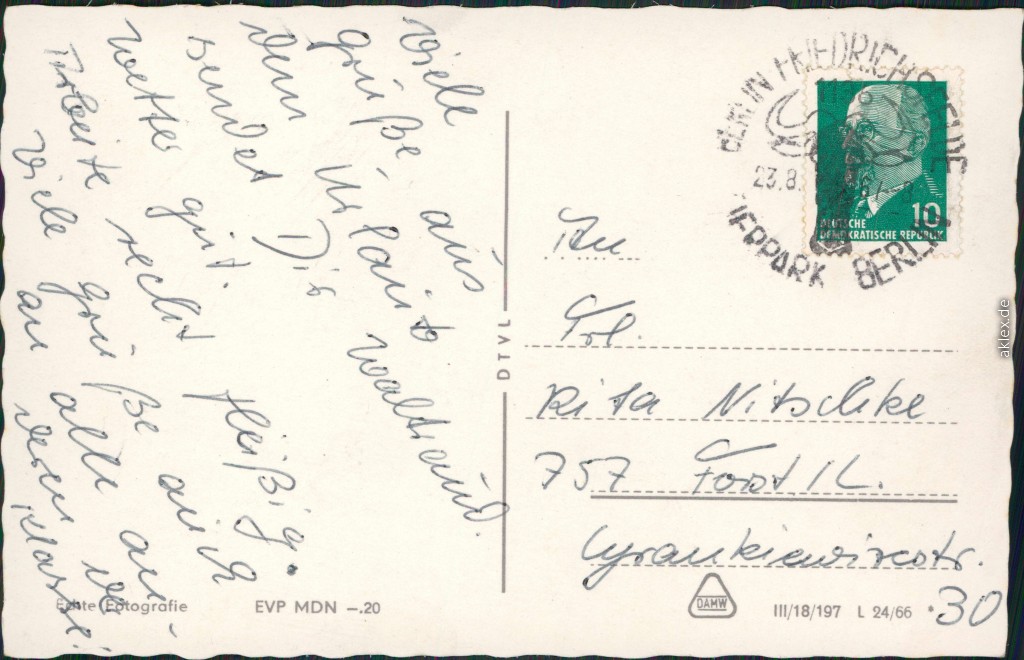 Viele
Grüße aus
dem Urlaub
sendet Dir Waltraud.
Wetter gut.
Arbeite recht fleißig.
Viele Grüße auch
an alle an
deren Klasse!
BERLIN FRIEDRICHSFELDE
23.8.
TIERPARK BERLIN
10
DEUTSCHE
DEMOKRATISCHE REPUBLIK
An
Frl.
Rita Nitschke
757 Forst/L.
Cyrankiewiczstr.
30
DTVL
Echte Fotografie
EVP MDN –.20
DAMW
III/18/197 L 24/66
aklex.de